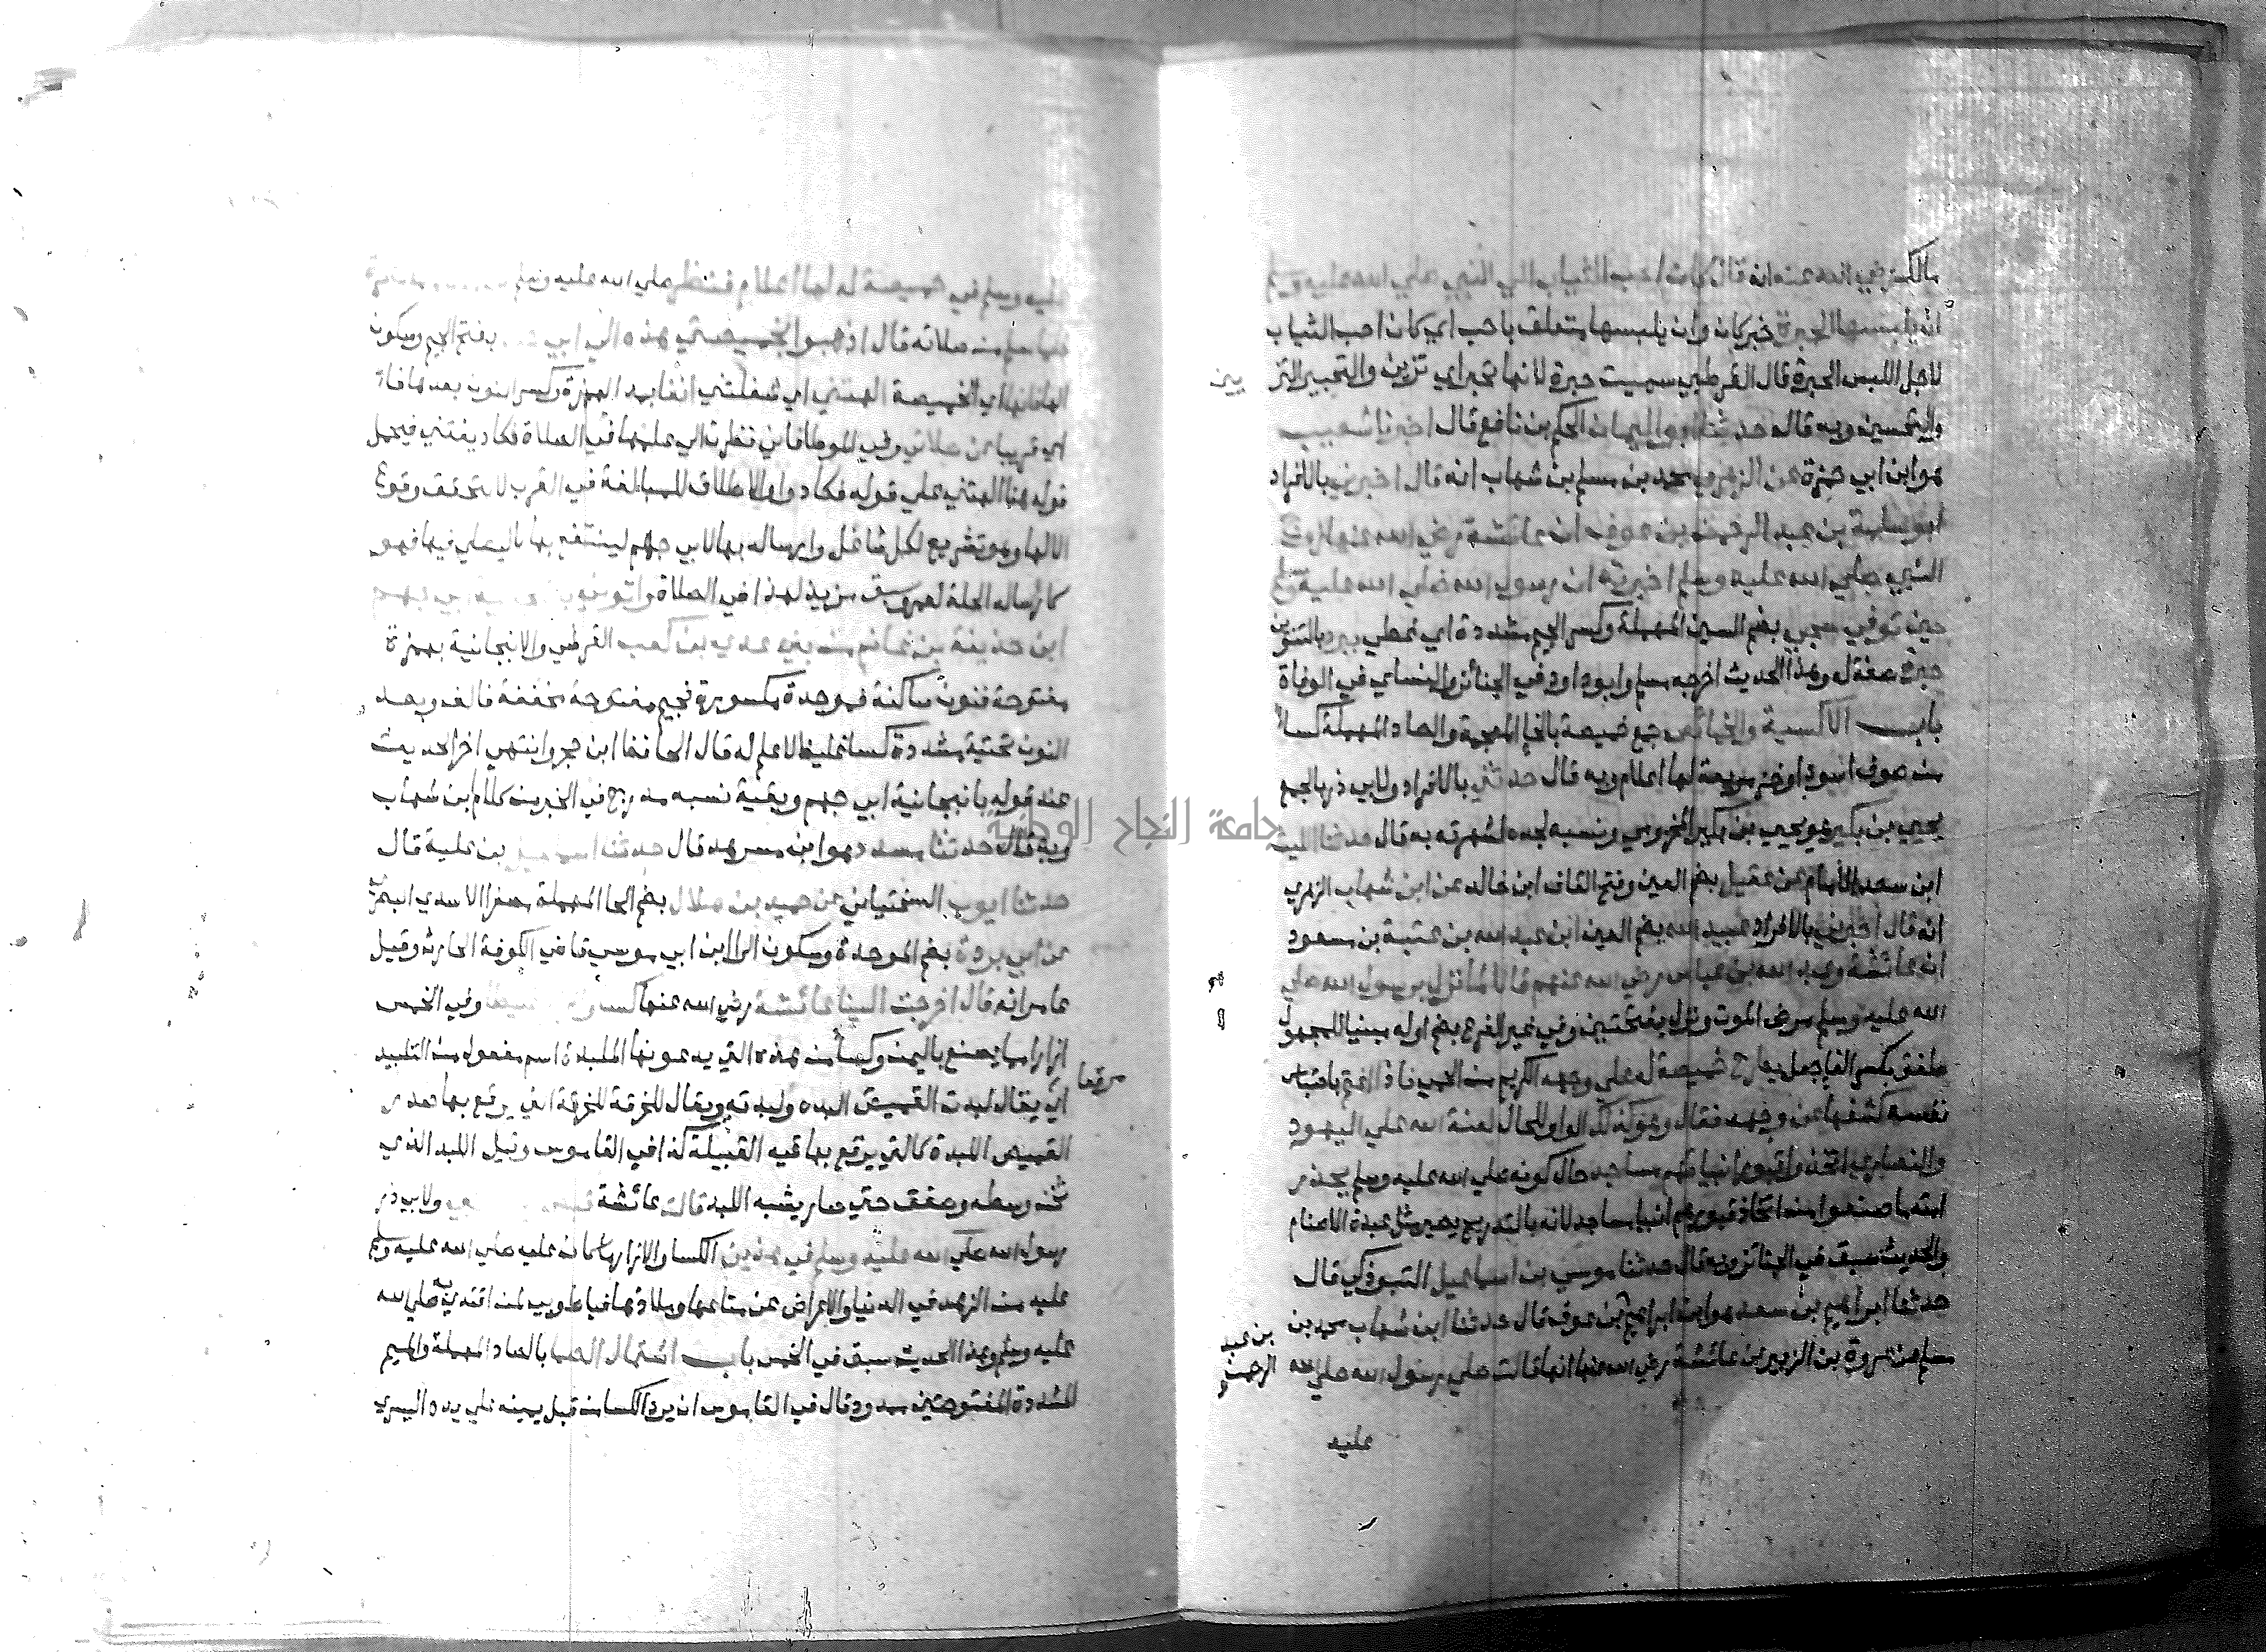 مالك رضي الله عنه انه قال كان احب الثياب الي النبي صلي الله عليه وسلم
ان يلبسها الحبرة خبر كان وان يلبسها متعلق باحب اي كان احب الثياب
لاجل اللبس الحبرة قال القرطبي سميت حبرة لانها تحبر اي تزين والتحبير التز
يين
والتحسين وبه قال حدثنا ابو اليمان الحكم بن نافع قال اخبرنا شعيب
هو ابن ابي حمزة عن الزهري محمد بن مسلم بن شهاب انه قال اخبرني بالافراد
ابو سلمة بن عبد الرحمن بن عوف ان عائشة رضي الله عنها زوج
النبي صلي الله عليه وسلم اخبرته ان رسول الله صلي الله عليه وسلم
حين توفي سجي بضم السين المهملة وكسر الجيم مشددة اي غطي ببرد بالتنوين
حبرة صفة له وهذا الحديث اخرجه مسلم وابو داود في الجنائز والنساي في الوفاة
باب الاكسية والخمائص جمع خميصة بالخا المعجمة والصاد المهملة كساء
من صوف اسود او خز مربعة لها اعلام وبه قال حدثني بالافراد ولابي ذر بالجمع
يحيي بن بكير هو يحيي بن بكير المخزومي ونسبه لجده لشهرته به قال حدثنا الليث
ابن سعد الامام عن عقيل بضم العين وفتح القاف ابن خالد عن ابن شهاب الزهري
انه قال اخبرني بالافراد عبيد الله بضم العين ابن عبد الله بن عتبة بن مسعود
ان عائشة وعبد الله بن عباس رضي الله عنهم قالا لما نزل برسول الله صلي
الله عليه وسلم مرض الموت ونزل بفتحتين وفي غير الفرع بضم اوله مبنيا للمجهول
طفق بكسر الفا جعل يطرح خميصة له علي وجهه الكريم من الحمي فاذا اغتم باحتباس
نفسه كشفها عن وجهه فقال وهو كذلك الواو للحال لعنة الله علي اليهود
والنصاري اتخذوا قبور انبيائهم مساجد حال كونه صلي الله عليه وسلم يحذر
امته ما صنعوا من اتخاذ قبور انبيا مساجد لانه بالتدريج يصير مثل عبدة الاصنام
والحديث سبق في الجنائز وبه قال حدثنا موسي بن اسماعيل التبوذكي قال
حدثنا ابراهيم بن سعد هو ابن ابراهيم بن عوف قال حدثنا ابن شهاب محمد بن
بن عبد الرحمن
مسلم عن عروة بن الزبير عن عائشة رضي الله عنها انها قالت صلي رسول الله صلي الله
عليه
عليه وسلم في خميصة له لها اعلام فنظر صلي الله عليه وسلم
فلما سلم من صلاته قال اذهبوا بخميصتي هذه الي ابي بفتح الجيم وسكون
الها فانها اي الخميصة الهتني اي شغلتني انفا بمد الهمزة وكسر النون بعدها فا
اي قريبا عن صلاتي وفي الموطا فاني نظرت الي علمها في الصلاة فكاد يفتنني فيحمل
قوله هنا الهتني علي قوله فكاد والاطلاق للمبالغة في القرب لا لتحقق وقوع
الالها وهو تشريع لكل شاغل وارساله بها لابي جهم لينتفع بها لا ليصلي فيها فهو
كارساله الحلة لعمر وسبق مزيد لهذا في الصلاة واتوني
ابن حذيفة بن غانم من بني عدي بن كعب القرشي والانبجانية بهمزة
مفتوحة فنون ساكنة فموحدة مكسورة فجيم مفتوحة مخففة فالف وبعد
النون تحتية مشددة كسا غليظ لا علم له قال الحافظ ابن حجر وانتهي اخر الحديث
عند قوله بانبجانية ابي جهم وبقية نسبه مدرج في الخبر من كلام ابن شهاب
وبه قال حدثنا مسدد هو ابن مسرهد قال حدثنا بن علية قال
حدثنا ايوب السختياني عن حميد بن هلال بضم الحا المهملة مصغرا الاسدي البصري
عن ابي بردة بضم الموحدة وسكون الرا ابن ابي موسي قاضي الكوفة الحارث وقيل
عامر انه قال اخرجت الينا عائشة رضي الله عنها كسا وفي الخمس
ازارا مما يصنع باليمن وكسا من هذه التي يدعونها الملبدة اسم مفعول من التلبيد
مرقعا
اي يقال لبدت القميص البده ولبدته ويقال للخرقة التي يرقع بها صدر
القميص اللبدة كالتي يرقع بها قبه القبيلة كذا في القاموس وقيل اللبد الذي
ثخن وسطه وصفق حتي صار يشبه اللبد قالت عائشة ولابي ذر
رسول الله صلي الله عليه وسلم في هذين الكسا والازار لما كان عليه صلي الله عليه وسلم
عليه من الزهد في الدنيا والاعراض عن متاعها وملاذها فيا طوبي لمن اقتدي به صلي الله
عليه وسلم وهذا الحديث سبق في الخمس باب اشتمال الصما بالصاد المهملة والميم
المشددة المفتوحتين ممدود قال في القاموس ان يرد الكسا من قبل يمينه علي يده اليسري
جامعة النجاح الوطنية